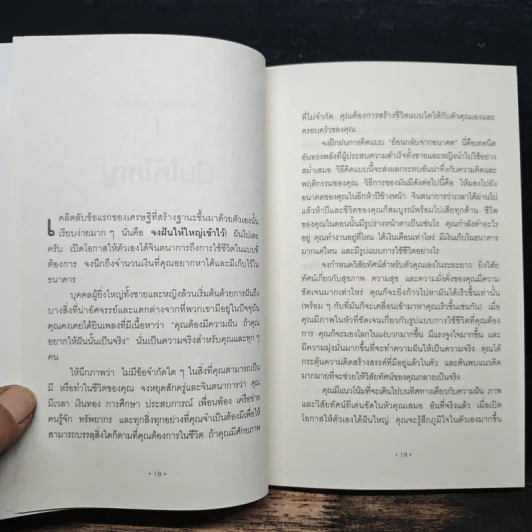 เคล็ดลับข้อแรกของเศรษฐีที่สร้างฐานะขึ้นมาด้วยตัวเองนั้น
เรียบง่ายมาก ๆ นั่นคือ จงฝันให้ใหญ่เข้าไว้! ฝันไปเลย
ครับ เปิดโอกาสให้ตัวเองได้จินตนาการถึงการใช้ชีวิตในแบบที่
ต้องการ จงนึกถึงจำนวนเงินที่คุณอยากหาได้และมีเก็บไว้ใน
ธนาคาร
บุคคลผู้ยิ่งใหญ่ทั้งชายและหญิงล้วนเริ่มต้นด้วยการฝันถึง
บางสิ่งที่น่าอัศจรรย์และแตกต่างจากที่พวกเขามีอยู่ในปัจจุบัน
คุณคงเคยได้ยินเพลงที่มีเนื้อหาว่า "คุณต้องมีความฝัน ถ้าคุณ
อยากให้ฝันนั้นเป็นจริง" นั่นเป็นความจริงสำหรับคุณและทุก ๆ
คน
ให้นึกภาพว่า ไม่มีข้อจำกัดใด ๆ ในสิ่งที่คุณสามารถเป็น
มี หรือทำในชีวิตของคุณ จงหยุดสักครู่และจินตนาการว่า คุณ
มีเวลา เงินทอง การศึกษา ประสบการณ์ เพื่อนพ้อง เครือข่าย
คนรู้จัก ทรัพยากร และทุกสิ่งทุกอย่างที่คุณจำเป็นต้องมีเพื่อให้
สามารถบรรลุสิ่งใดก็ตามที่คุณต้องการในชีวิต ถ้าคุณมีศักยภาพ
• 18 •
ที่ไม่จำกัด คุณต้องการสร้างชีวิตแบบใดให้กับตัวคุณเองและ
ครอบครัวของคุณ
จงฝึกฝนการคิดแบบ "ย้อนกลับจากอนาคต" นี่คือเทคนิค
อันทรงพลังที่ผู้ประสบความสำเร็จทั้งชายและหญิงนำไปใช้อย่าง
สม่ำเสมอ วิธีคิดแบบนี้จะส่งผลกระทบอันน่าทึ่งกับความคิดและ
พฤติกรรมของคุณ วิธีการของมันมีดังต่อไปนี้คือ ให้มองไปยัง
อนาคตของคุณในอีกห้าปีข้างหน้า จินตนาการว่าเวลาได้ผ่านไป
แล้วห้าปีและชีวิตของคุณก็สมบูรณ์พร้อมไปเสียทุกด้าน ชีวิต
ของคุณในตอนนั้นมีรูปร่างหน้าตาเป็นอย่างไร คุณกำลังทำอะไร
อยู่ คุณทำงานอยู่ที่ไหน ได้เงินเดือนเท่าไหร่ มีเงินเก็บในธนาคาร
มากแค่ไหน และมีรูปแบบการใช้ชีวิตอย่างไร
จงกำหนดวิสัยทัศน์สำหรับตัวคุณเองในระยะยาว ยิ่งวิสัย
ทัศน์เกี่ยวกับสุขภาพ ความสุข และความมั่งคั่งของคุณมีความ
ชัดเจนมากเท่าไหร่ คุณก็จะยิ่งก้าวไปหามันได้เร็วขึ้นเท่านั้น
(พร้อม ๆ กับที่มันก็จะเคลื่อนเข้ามาหาคุณเร็วขึ้นเช่นกัน) เมื่อ
คุณมีภาพในหัวที่ชัดเจนเกี่ยวกับรูปแบบการใช้ชีวิตที่คุณต้อง
การ คุณก็จะมองโลกในแง่บวกมากขึ้น มีแรงจูงใจมากขึ้น และ
มีความมุ่งมั่นมากขึ้นที่จะทำความฝันให้เป็นความจริง คุณได้
กระตุ้นความคิดสร้างสรรค์ที่มีอยู่แล้วในตัว และค้นพบแนวคิด
มากมายที่จะช่วยให้วิสัยทัศน์ของคุณกลายเป็นจริง
คุณมีแนวโน้มที่จะเดินไปบนทิศทางเดียวกับความฝัน ภาพ
และวิสัยทัศน์ที่เด่นชัดในหัวคุณเสมอ อันที่จริงแล้ว เมื่อเปิด
โอกาสให้ตัวเองได้ฝันใหญ่ คุณจะรู้สึกภูมิใจในตัวเองมากขึ้น
• 19 •